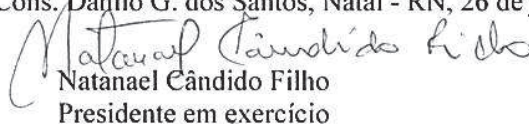 Cons. Danilo G. dos Santos, Natal - RN, 26 de
Natanael Cândido Filho
Natanael Cândido Filho
Presidente em exercício